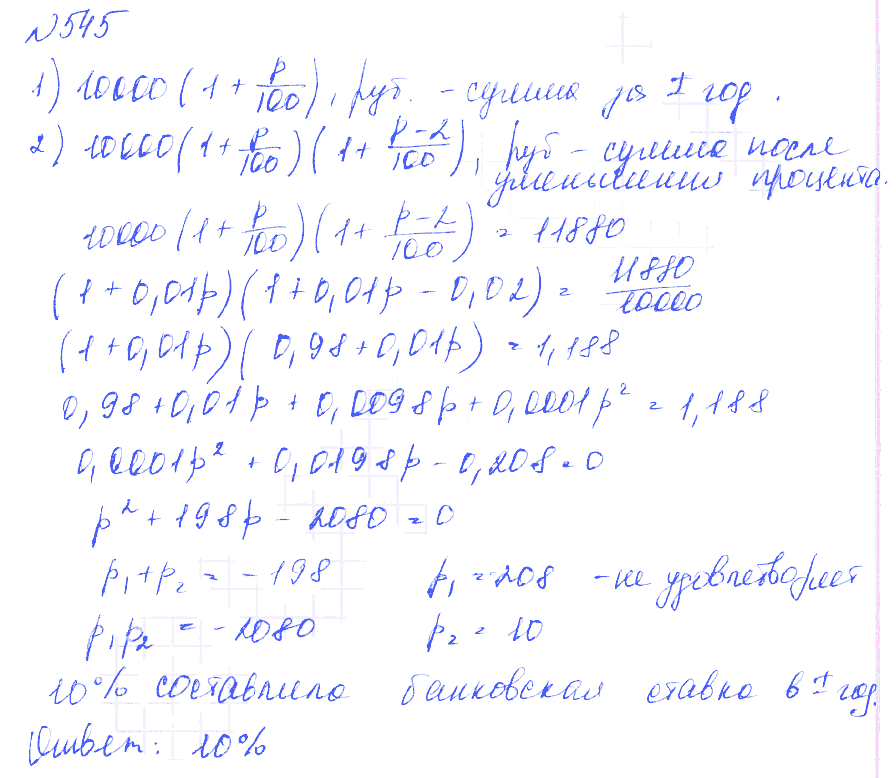 №545
1) 10000(1 + p/100), руб. - сумма за 1 год.
2) 10000(1 + p/100)(1 + p-2/100), руб - сумма после
уменьшения процента.
10000(1 + p/100)(1 + p-2/100) = 11880
(1 + 0,01p)(1 + 0,01p - 0,02) = 11880/10000
(1 + 0,01p)(0,98 + 0,01p) = 1,188
0,98 + 0,01p + 0,0098p + 0,0001p² = 1,188
0,0001p² + 0,0198p - 0,208 = 0
p² + 198p - 2080 = 0
p₁ + p₂ = -198 p₁ = -208 - не удовлетворяет
p₁p₂ = -2080 p₂ = 10
10% составила банковская ставка в 1 год.
Ответ: 10%